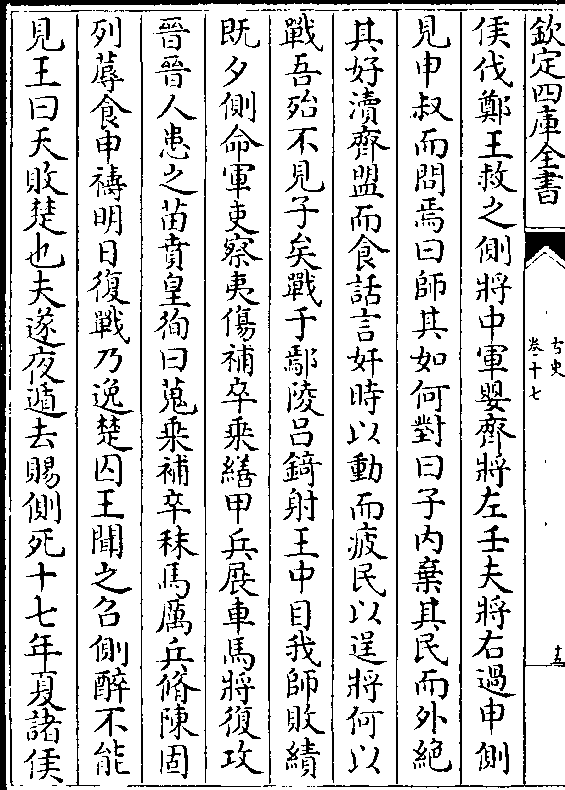 欽定四庫全書
古史
卷十七
十五
侯伐鄭王救之側將中軍嬰齊將左壬夫將右過申側
見申叔而問焉曰師其如何對曰子内棄其民而外絶
其好瀆齊盟而食話言奸時以動而疲民以逞將何以
戰吾殆不見子矣戰于鄢陵吕錡射王中目我師敗績
既夕側命軍吏察夷傷補卒乘繕甲兵展車馬將復攻
晉晉人患之苗賁皇狥曰蒐乘補卒秣馬厲兵脩陳固
列蓐食申禱明日復戰乃逸楚囚王聞之召側醉不能
見王曰天敗楚也夫遂夜遁去賜側死十七年夏諸侯